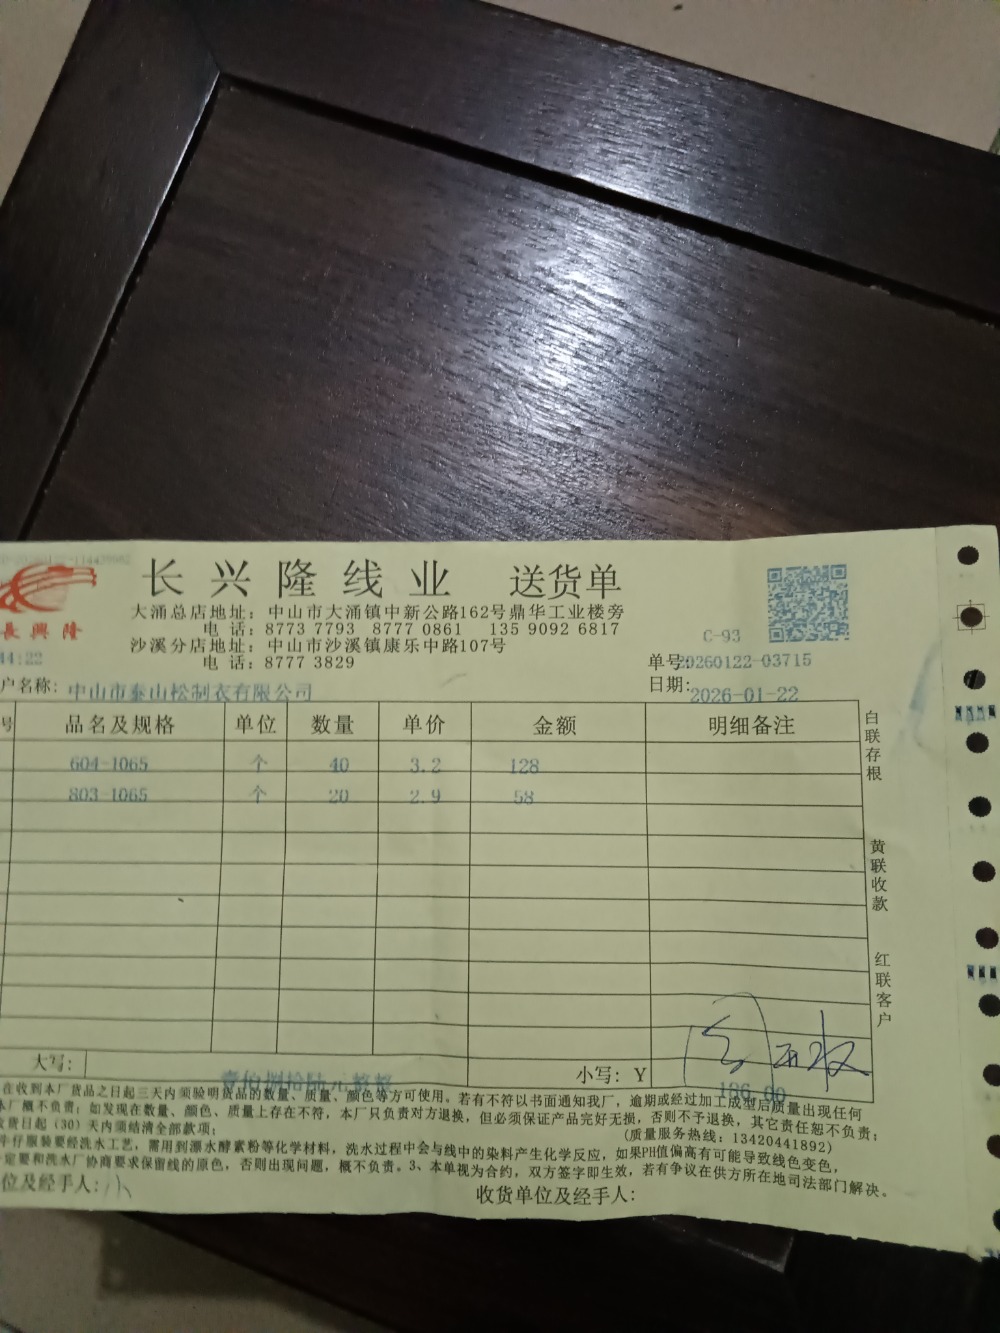 长兴隆线业 送货单
長興隆
大涌总店地址：中山市大涌镇中新公路162号鼎华工业楼旁
电 话：8773 7793 8770 0861 135 9092 6817
沙溪分店地址：中山市沙溪镇康乐中路107号
电 话：8777 3829
C-93
44:22
单号:20260122-03715
户名称: 中山市泰山松制衣有限公司
日期: 2026-01-22
号 品名及规格 单位 数量 单价 金额 明细备注
604-1065 个 40 3.2 128
803-1065 个 20 2.9 58
白联存根
黄联收款
红联客户
大写: 壹佰捌拾陆元整 小写: Y 186.00
在收到本厂货品之日起三天内须验明货品的数量、质量、颜色等方可使用。若有不符以书面通知我厂，逾期或经过加工成型后质量出现任何
本厂概不负责；如发现在数量、颜色、质量上存在不符，本厂只负责对方退换，但必须保证产品完好无损，否则不予退换，其它责任恕不负责；
货日起（30）天内须结清全部款项；
(质量服务热线：13420441892)
牛仔服装要经洗水工艺，需用到漂水酵素粉等化学材料，洗水过程中会与线中的染料产生化学反应，如果PH值偏高有可能导致线色变色，
定要和洗水厂协商要求保留线的原色，否则出现问题，概不负责。3、本单视为合约，双方签字即生效，若有争议在供方所在地司法部门解决。
位及经手人: 收货单位及经手人: